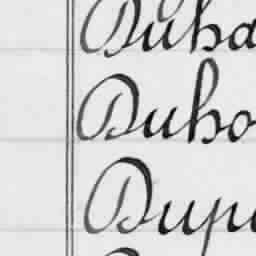 Duha
Duho
Dupu